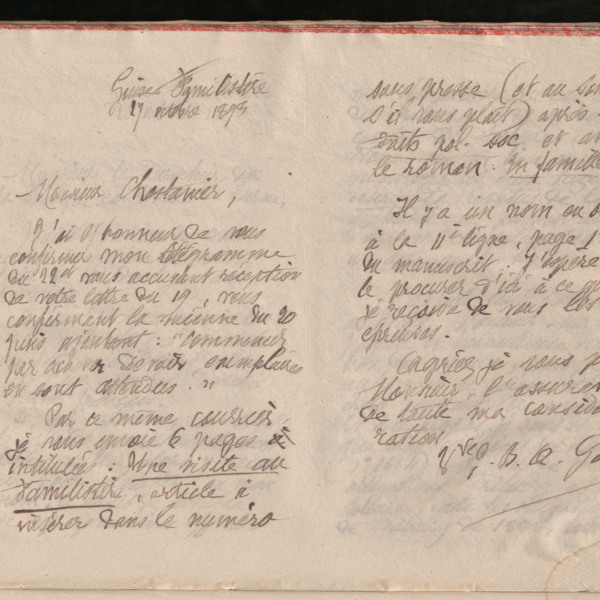 Guise Familistère
27 octobre 1898
Monsieur Chastanier,
J'ai l'honneur de vous
confirmer mon télégramme
du 22 et vous accusant réception
de votre lettre du 19, vous
confirmant la mienne du 20
puis ajoutant : "Commencer
par Devoir, exemplaires
en sont attendus."
Par ce même courrier
je vous envoie 6 pages
intitulées : Une visite au
Familistère, article à
insérer dans le numéro
sous presse (et au
s'il vous plait) après
faits pol. soc et
le roman : En famille
Il y a un nom
à la 11e ligne, page 1
du manuscrit. J'espère
le procurer d'ici à ce
je reçoive de vous les
épreuves.
Agréez je vous
Monsieur, l'
de toute ma considé
ration
Vve J. B. A. Go